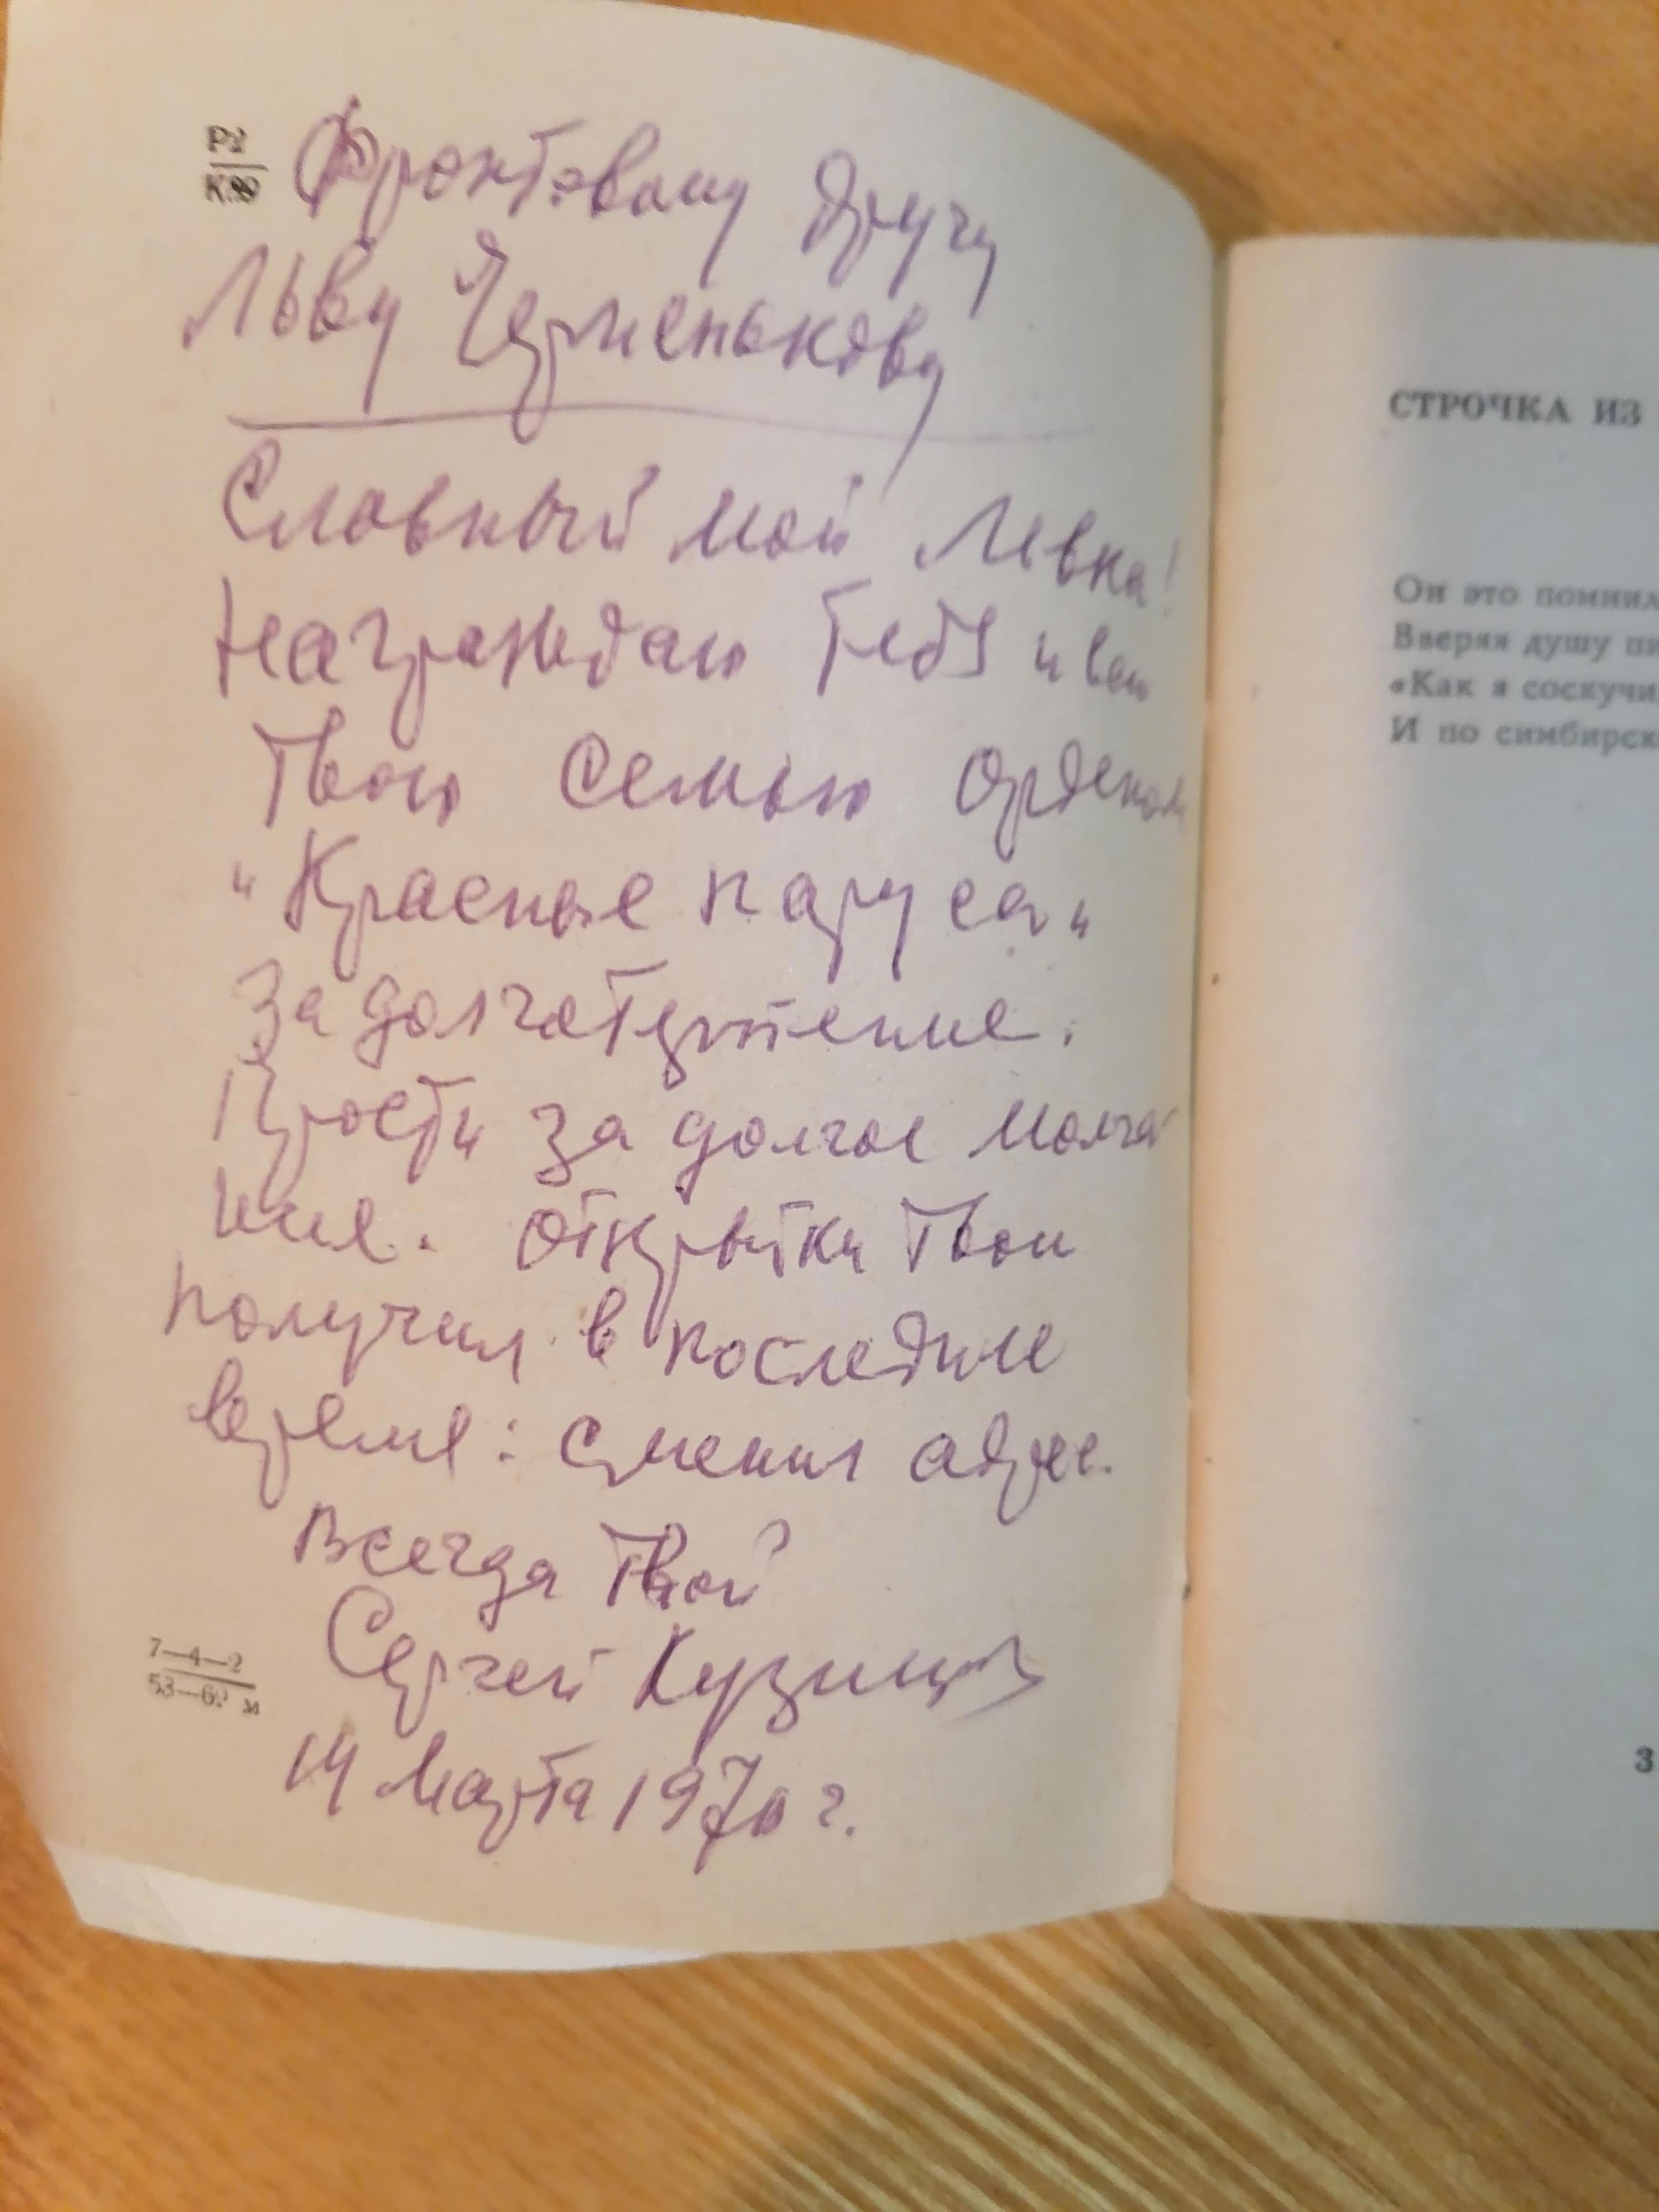 Р2
К89
Фронтовому другу
Льву Черменькову
Славный мой Левка!
Награждаю тебя и всю
твою семью орденом
"Красные паруса"
за долготерпение.
Прости за долгое молча-
ние. Открытки твои
получил в последнее
время: сменил адрес.
Всегда твой
Сергей Кузнецов
14 марта 1970 г.
7—4—2
53—69 м
СТРОЧКА ИЗ
Он это помнил
Вверяя душу пи
«Как я соскучи
И по симбирск
3